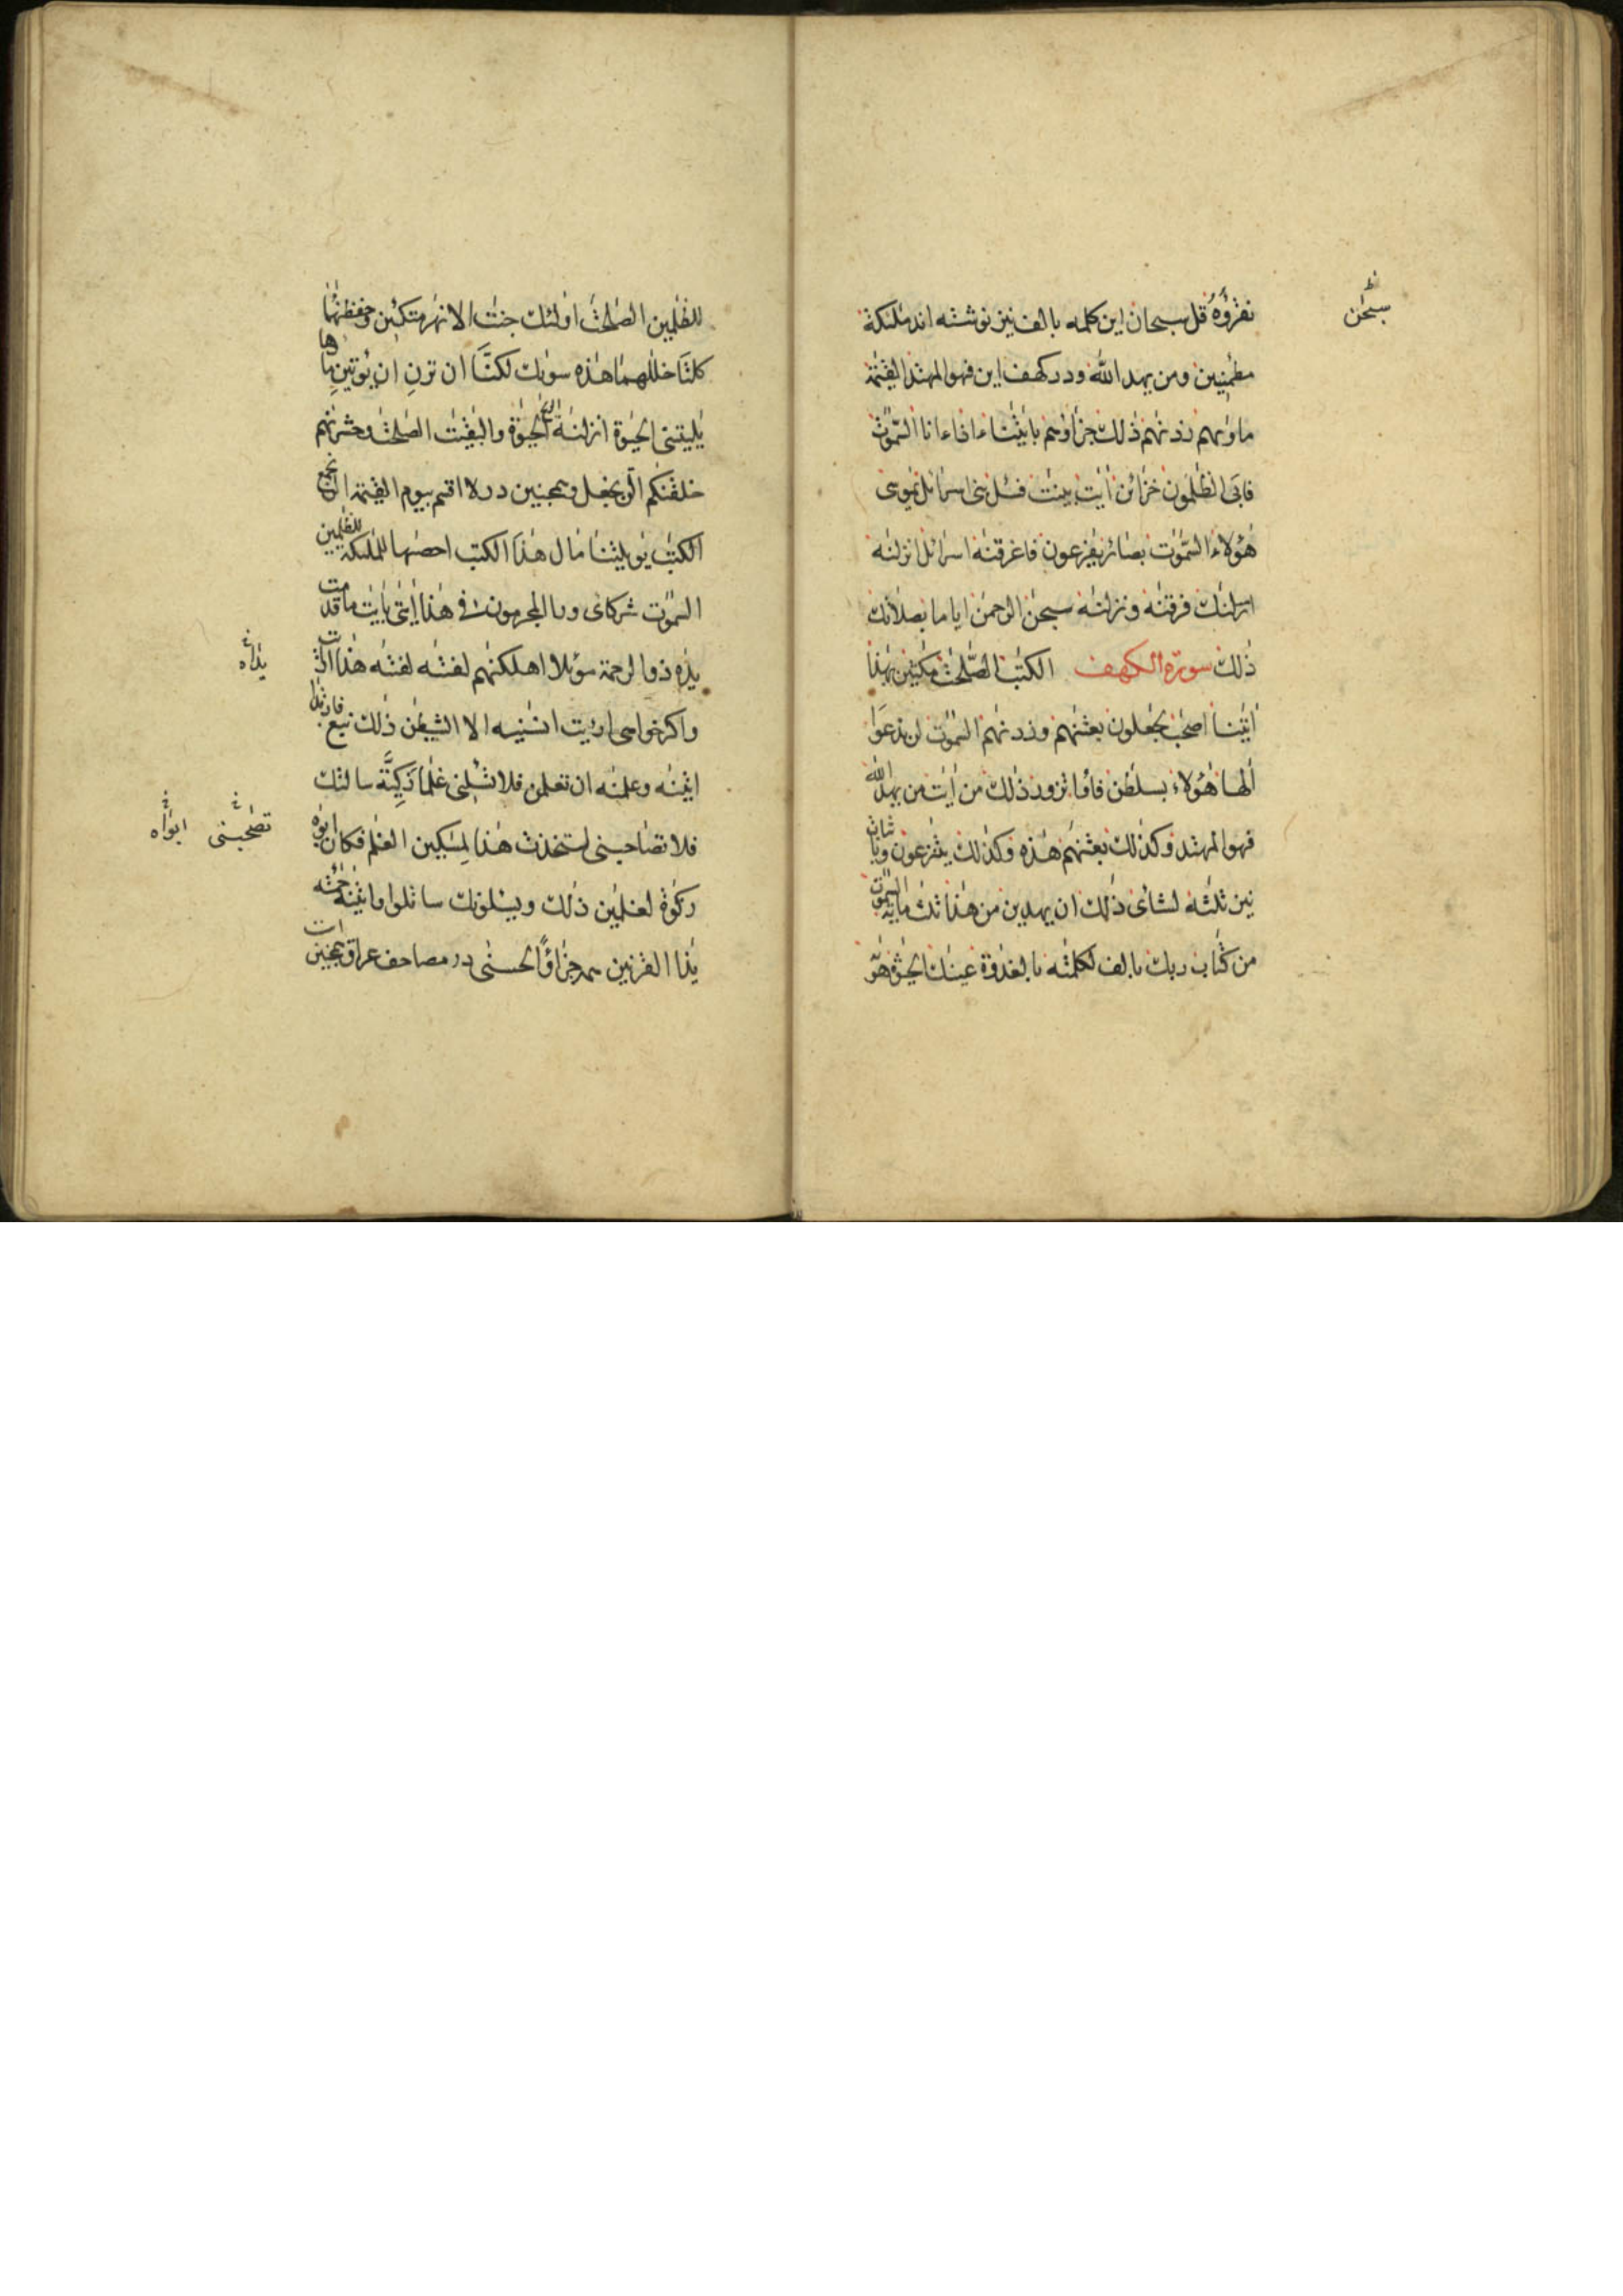 نقرؤه قل سبحان این کلمه بالف نیز نوشته اند ملئکة
مطمئنین ومن یهد الله ودر کهف این فهو المهتد القیمة
ماویهم زدنهم ذلك جزاؤهم بایتنا ءاذا ءانا السموت
فابی الظلمون خزائن ایت بینت فسئل بنی اسرائل یموسی
هؤلاء السموت بصائر یفرعون فاغرقنه اسرائل انزلنه
ارسلنك فرقنه ونزلنه سبحن الرحمن ایاما بصلاتك
ذلك سورة الکهف الکتب الصلحت مکثین بهذا
ایتنا اصحب لجعلون بعثنهم وزدنهم السموت لن ندعوا
الها هؤلاء بسلطن فاوا تزور ذلك من ایت من یهد الله
فهو المهتد وکذلك بعثنهم هذه وکذلك
ثلثة لشائ ذلك ان یهدین من السموت
من کتاب ربك بالف لکلمته بالغدوة عینك الحیوة هویه
سبحن
للظلمین الصلحت اولئك جنت الانهر متکئین وحففنهما
کلتا خللهما هذه سویك لکنا ان ترن ان یؤتین ها
یلیتنی الحیوة انزلنه الریح الحیوة والبقیت الصلحت وحشرنهم
خلقنکم الن نجعل در لا اقسم بیوم القیمة الن نجمع
الکتب یویلتنا مال هذا الکتب احصیها للملئکة للظلمین
السموت شرکای ورا المجرمون فی هذا ایتی بایت ما قدمت
یده ذو الرحمة موئلا اهلکنهم لفته لفته هذا
ارءیت انسنیه الا الشیطن ذلك نبغ فارتدا
اتینه وعلمنه ان تعلمن فلا تسئلنی غلما زکیة سالتك
فلا تصاحبنی لتخذت هذا لمسکین الغلم فکان ابوه
زکوة لغلمین ذلك ویسئلونك ساتلوا واتینه
یذا القرنین جزاؤا الحسنی در مصاحف عراق
یداه
تصحبنی ابواه